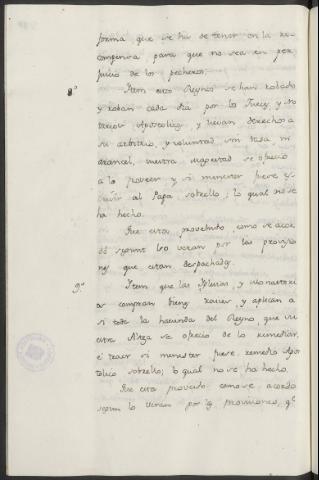 forma que se ha de tener en la re-
compensa, para que no sea en per
juicio de los pecheros.
8º Item estos Reynos se han robado
y roban cada dia por los Juezes, y No
tarios Apostolicos, y llevan derechos a
su arbitrio, y voluntad sin tasa ni
arancel, vuestra magestad se ofrecio
a lo proveer y si menester fuere es
cribir al Papa sobrello; lo qual no se
ha hecho.
Fue esta proveihdo, como se acor
dó segunt lo veran por las provisio
nes que estan despachadas.
9º Item que las Iglesias, y Monasteri
os compran bienes raizes, y aplican a
si toda la hacienda del Reyno, que vu
estra Alteza se ofrecio de lo remediar,
é traer si menester fuere remedio Apos
tolico sobrello; lo qual no se ha hecho.
Fue esta proveido como se acordo
segun lo veran por las provisiones, qe